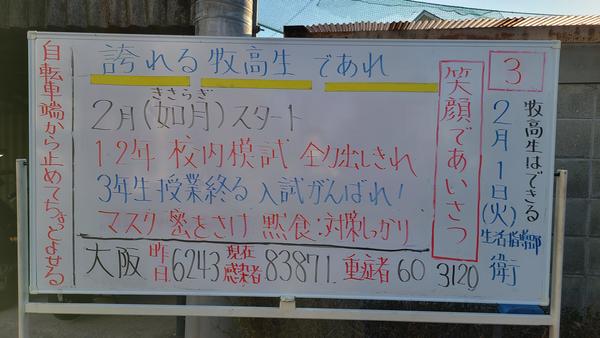 牧高生はできる
3
2月1日(火)
生活指導部
衛
笑顔であいさつ
誇れる牧高生であれ
きさらぎ
2月(如月)スタート
1・2年 校内模試 全力出しきれ
3年生授業終る 入試がんばれ!
マスク 密をさけ 黙食:対策しっかり
大阪 昨日6243 現在感染者83871 重症者60 3120
自転車端から止めてちょっとよせる